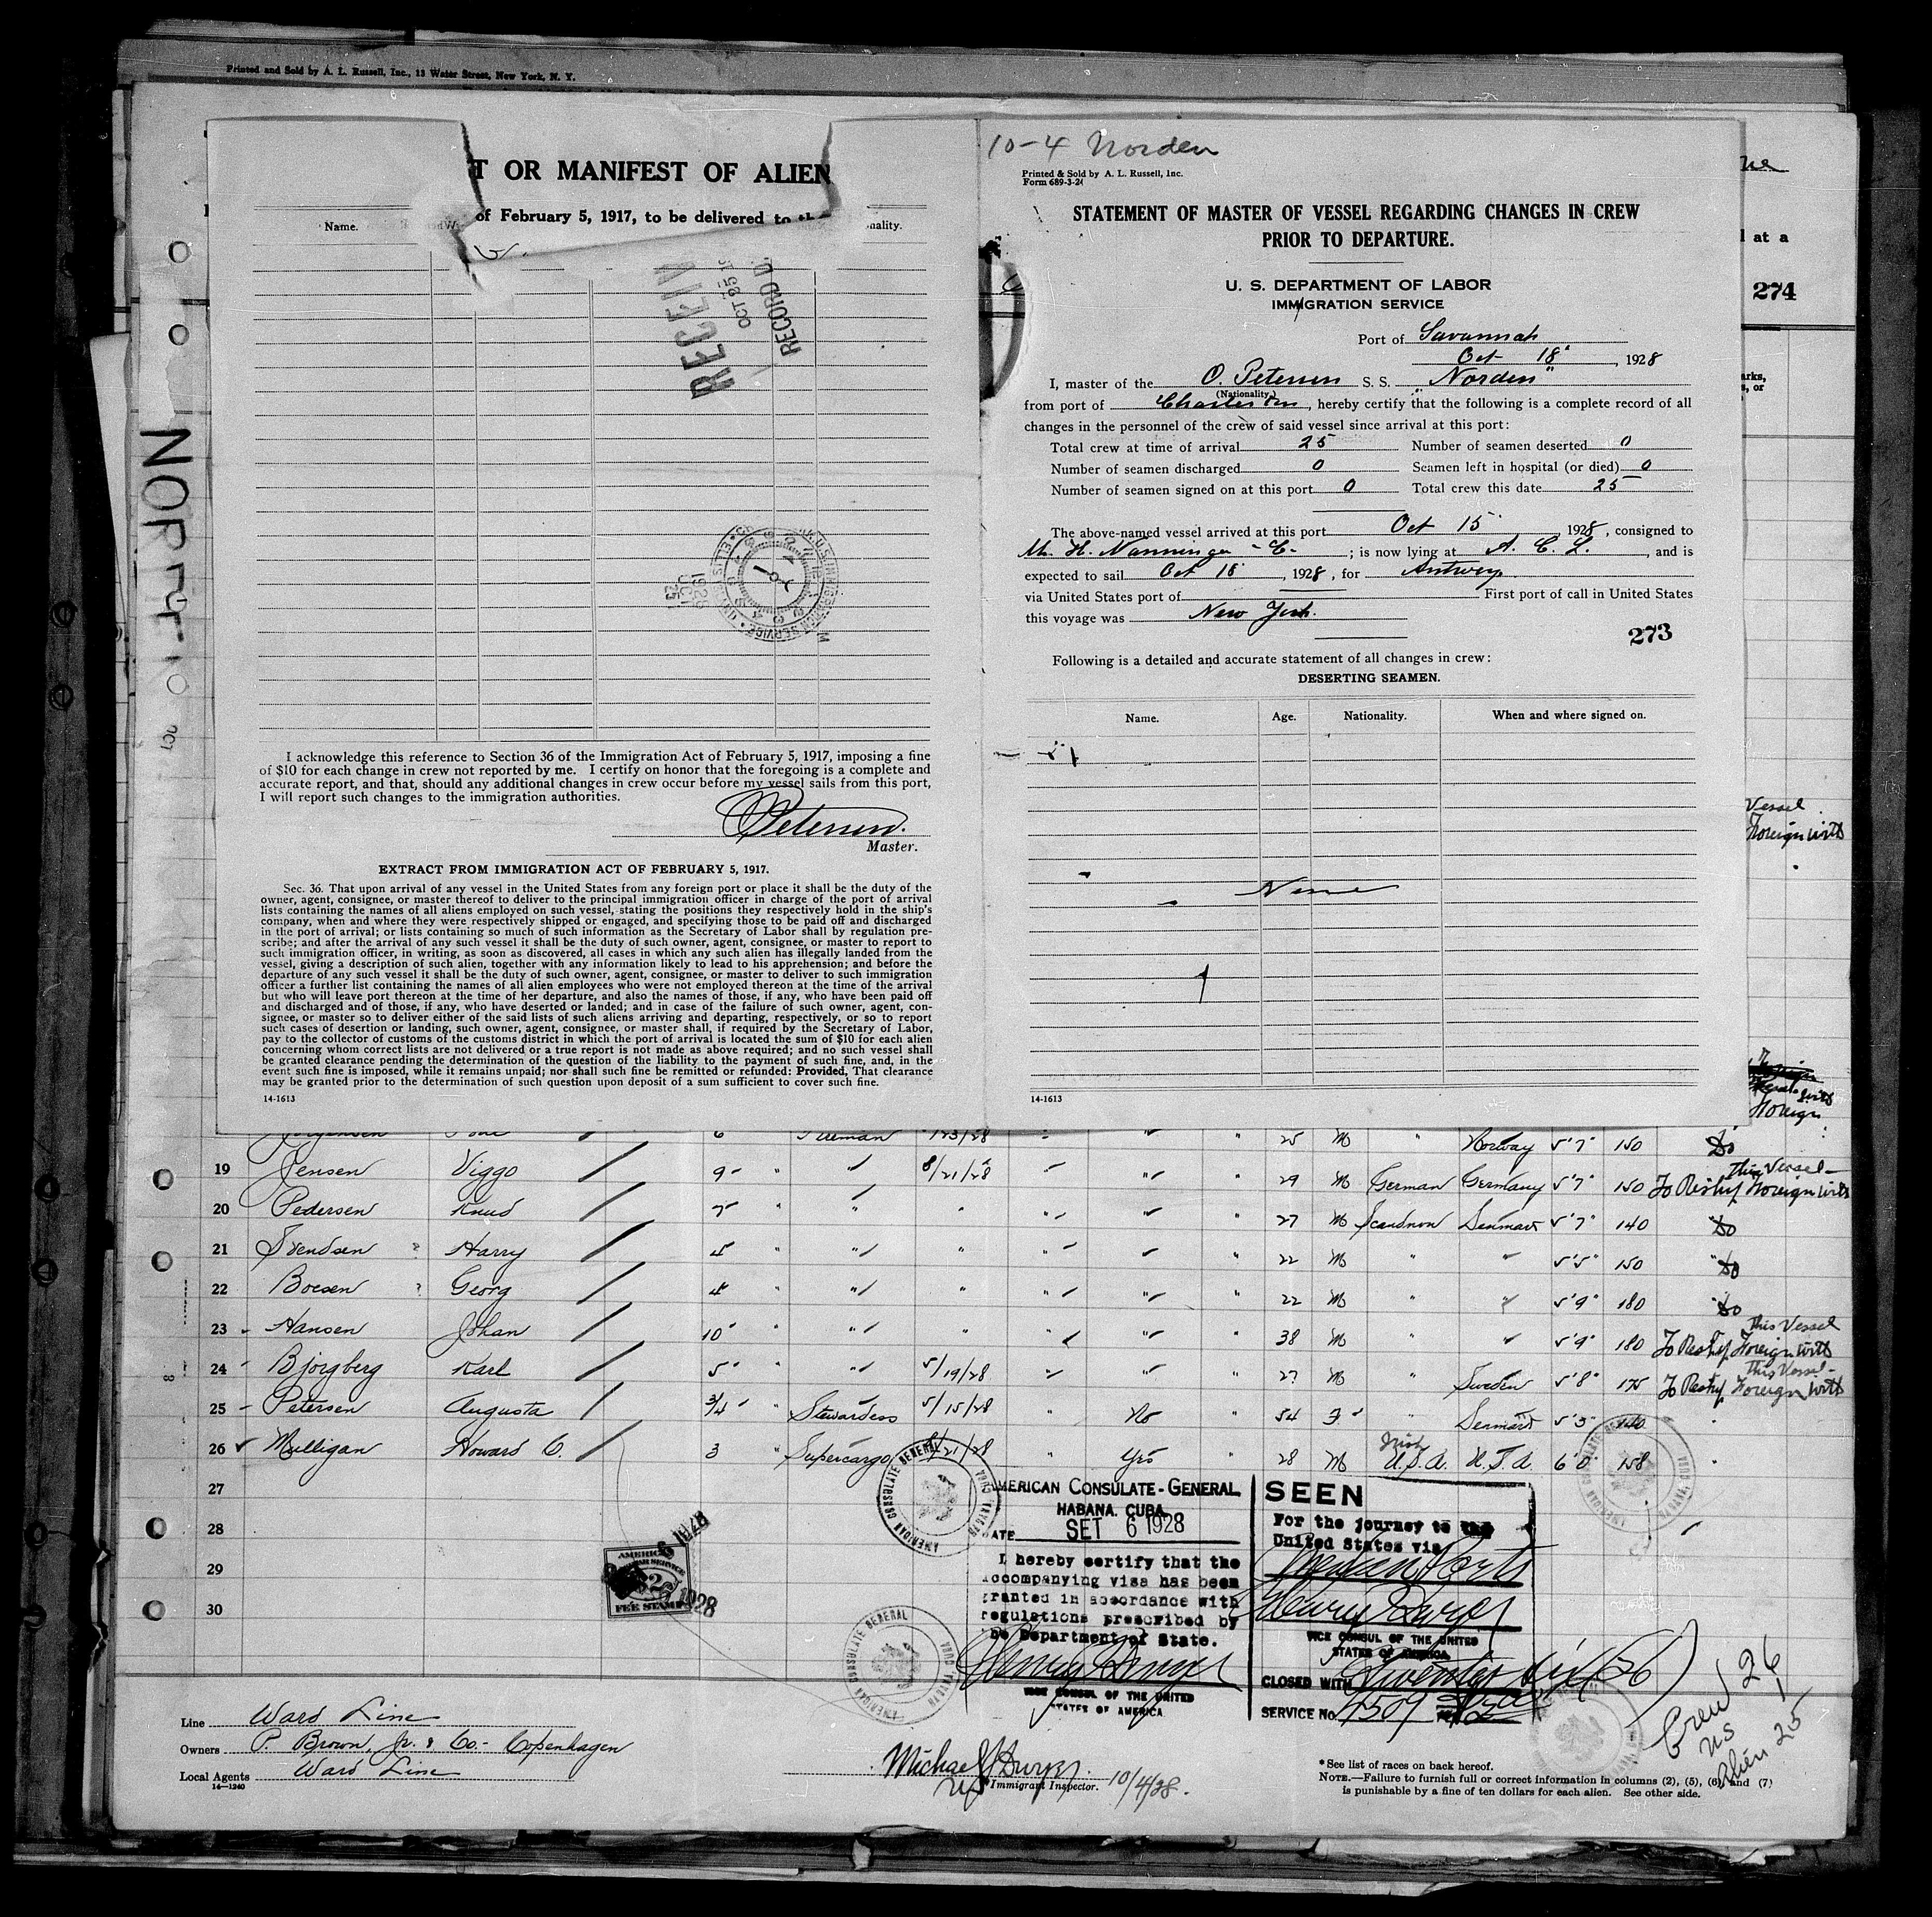 Printed and Sold by A. L. Russell, Inc., 13 Water Street, New York, N. Y.
T OR MANIFEST OF ALIEN
of February 5, 1917, to be delivered to th
Name.
nality.
OCT 25
RECORD
I acknowledge this reference to Section 36 of the Immigration Act of February 5, 1917, imposing a fine
of $10 for each change in crew not reported by me. I certify on honor that the foregoing is a complete and
accurate report, and that, should any additional changes in crew occur before my vessel sails from this port,
I will report such changes to the immigration authorities.
O Petersen.
Master.
EXTRACT FROM IMMIGRATION ACT OF FEBRUARY 5, 1917.
Sec. 36. That upon arrival of any vessel in the United States from any foreign port or place it shall be the duty of the
owner, agent, consignee, or master thereof to deliver to the principal immigration officer in charge of the port of arrival
lists containing the names of all aliens employed on such vessel, stating the positions they respectively hold in the ship's
company, when and where they were respectively shipped or engaged, and specifying those to be paid off and discharged
in the port of arrival; or lists containing so much of such information as the Secretary of Labor shall by regulation pre-
scribe; and after the arrival of any such vessel it shall be the duty of such owner, agent, consignee, or master to report to
such immigration officer, in writing, as soon as discovered, all cases in which any such alien has illegally landed from the
vessel, giving a description of such alien, together with any information likely to lead to his apprehension; and before the
departure of any such vessel it shall be the duty of such owner, agent, consignee, or master to deliver to such immigration
officer a further list containing the names of all alien employees who were not employed thereon at the time of the arrival
but who will leave port thereon at the time of her departure, and also the names of those, if any, who have been paid off
and discharged and of those, if any, who have deserted or landed; and in case of the failure of such owner, agent, con-
signee, or master so to deliver either of the said lists of such aliens arriving and departing, respectively, or so to report
such cases of desertion or landing, such owner, agent, consignee, or master shall, if required by the Secretary of Labor,
pay to the collector of customs of the customs district in which the port of arrival is located the sum of $10 for each alien
concerning whom correct lists are not delivered or a true report is not made as above required; and no such vessel shall
be granted clearance pending the determination of the question of the liability to the payment of such fine, and, in the
event such fine is imposed, while it remains unpaid; nor shall such fine be remitted or refunded: Provided, That clearance
may be granted prior to the determination of such question upon deposit of a sum sufficient to cover such fine.
14-1613
10-4 Norden
Printed & Sold by A. L. Russell, Inc.
Form 689-3-24
STATEMENT OF MASTER OF VESSEL REGARDING CHANGES IN CREW
PRIOR TO DEPARTURE.
U. S. DEPARTMENT OF LABOR
IMMIGRATION SERVICE
Port of Savannah
Oct 18", 1928
I, master of the O. Petersen S. S. "Norden"
(Nationality)
from port of Charleston, hereby certify that the following is a complete record of all
changes in the personnel of the crew of said vessel since arrival at this port:
Total crew at time of arrival 25 Number of seamen deserted 0
Number of seamen discharged 0 Seamen left in hospital (or died) 0
Number of seamen signed on at this port 0 Total crew this date 25
The above-named vessel arrived at this port Oct 15", 1928, consigned to
; is now lying at A. C. L., and is
expected to sail Oct 18", 1928, for Antwerp
via United States port of First port of call in United States
this voyage was New York.
273
Following is a detailed and accurate statement of all changes in crew:
DESERTING SEAMEN.
Name. Age. Nationality. When and where signed on.
None
14-1613
l at a
274
Vessel
Foreign with
Foreign
6 " 25 M " Norway 5'7" 150 Do
19 Jensen Viggo 9 " " 8/21/28 " " 29 M German Germany 5'7" 150 To Reship Foreign with This Vessel
20 Pedersen Knud 7 " " " " " " 27 M Scandnvn Denmark 5'7" 140 Do
21 Svendsen Harry 4 " " " " " " 22 M " " 5'5" 150 Do
22 Boesen Georg 4 " " " " " " 22 M " " 5'9" 180 Do
23 Hansen Johan 10 " " " " " " 38 M " " 5'9" 180 To Reship Foreign with This Vessel
24 Bjorgberg Karl 5 " " 5/19/28 " " 27 M " Sweden 5'8" 175 To Reship Foreign with This Vessel
25 Petersen Augusta 3/4 " Stewardess 5/15/28 " No " 54 F " Denmark 5'3" 140 "
26 Mulligan Howard C. 3 " Supercargo /21/28 " Yes " 28 M Irish U.S.A. U.S.A. 6'0" 158 "
27
28
29
30
AMERICAN CONSULATE-GENERAL
HABANA. CUBA
DATE SET 6 1928
I hereby certify that the
accompanying visa has been
granted in accordance with
regulations prescribed by
the Department of State.
VICE CONSUL OF THE UNITED
STATES OF AMERICA
SEEN
For the journey to the
United States via
VICE CONSUL OF THE UNITED
STATES OF AMERICA
CLOSED WITH Twenty six (26)
SERVICE No. 4509
AMERICAN CONSULATE GENERAL HABANA CUBA
FEE STAMP
Line Ward Line
Owners P. Brown, Jr. & Co. - Copenhagen
Local Agents Ward Line
14—1240
Michael J Dwyer
Immigrant Inspector. 10/4/28.
Crew 26
US 1
Alien 25
* See list of races on back hereof.
NOTE.—Failure to furnish full or correct information in columns (2), (5), (6) and (7)
is punishable by a fine of ten dollars for each alien. See other side.